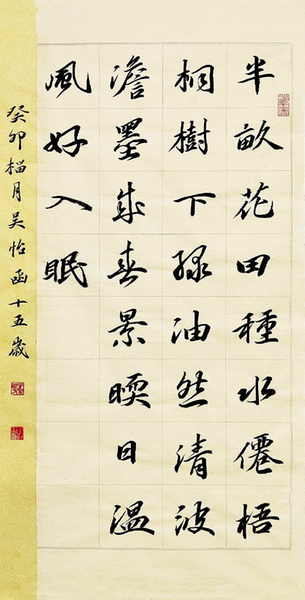 半畝花田種水僊梧
桐樹下綠油然清波
澹墨成春景暖日温
風好入眠
癸卯榴月吴怡函十五歲